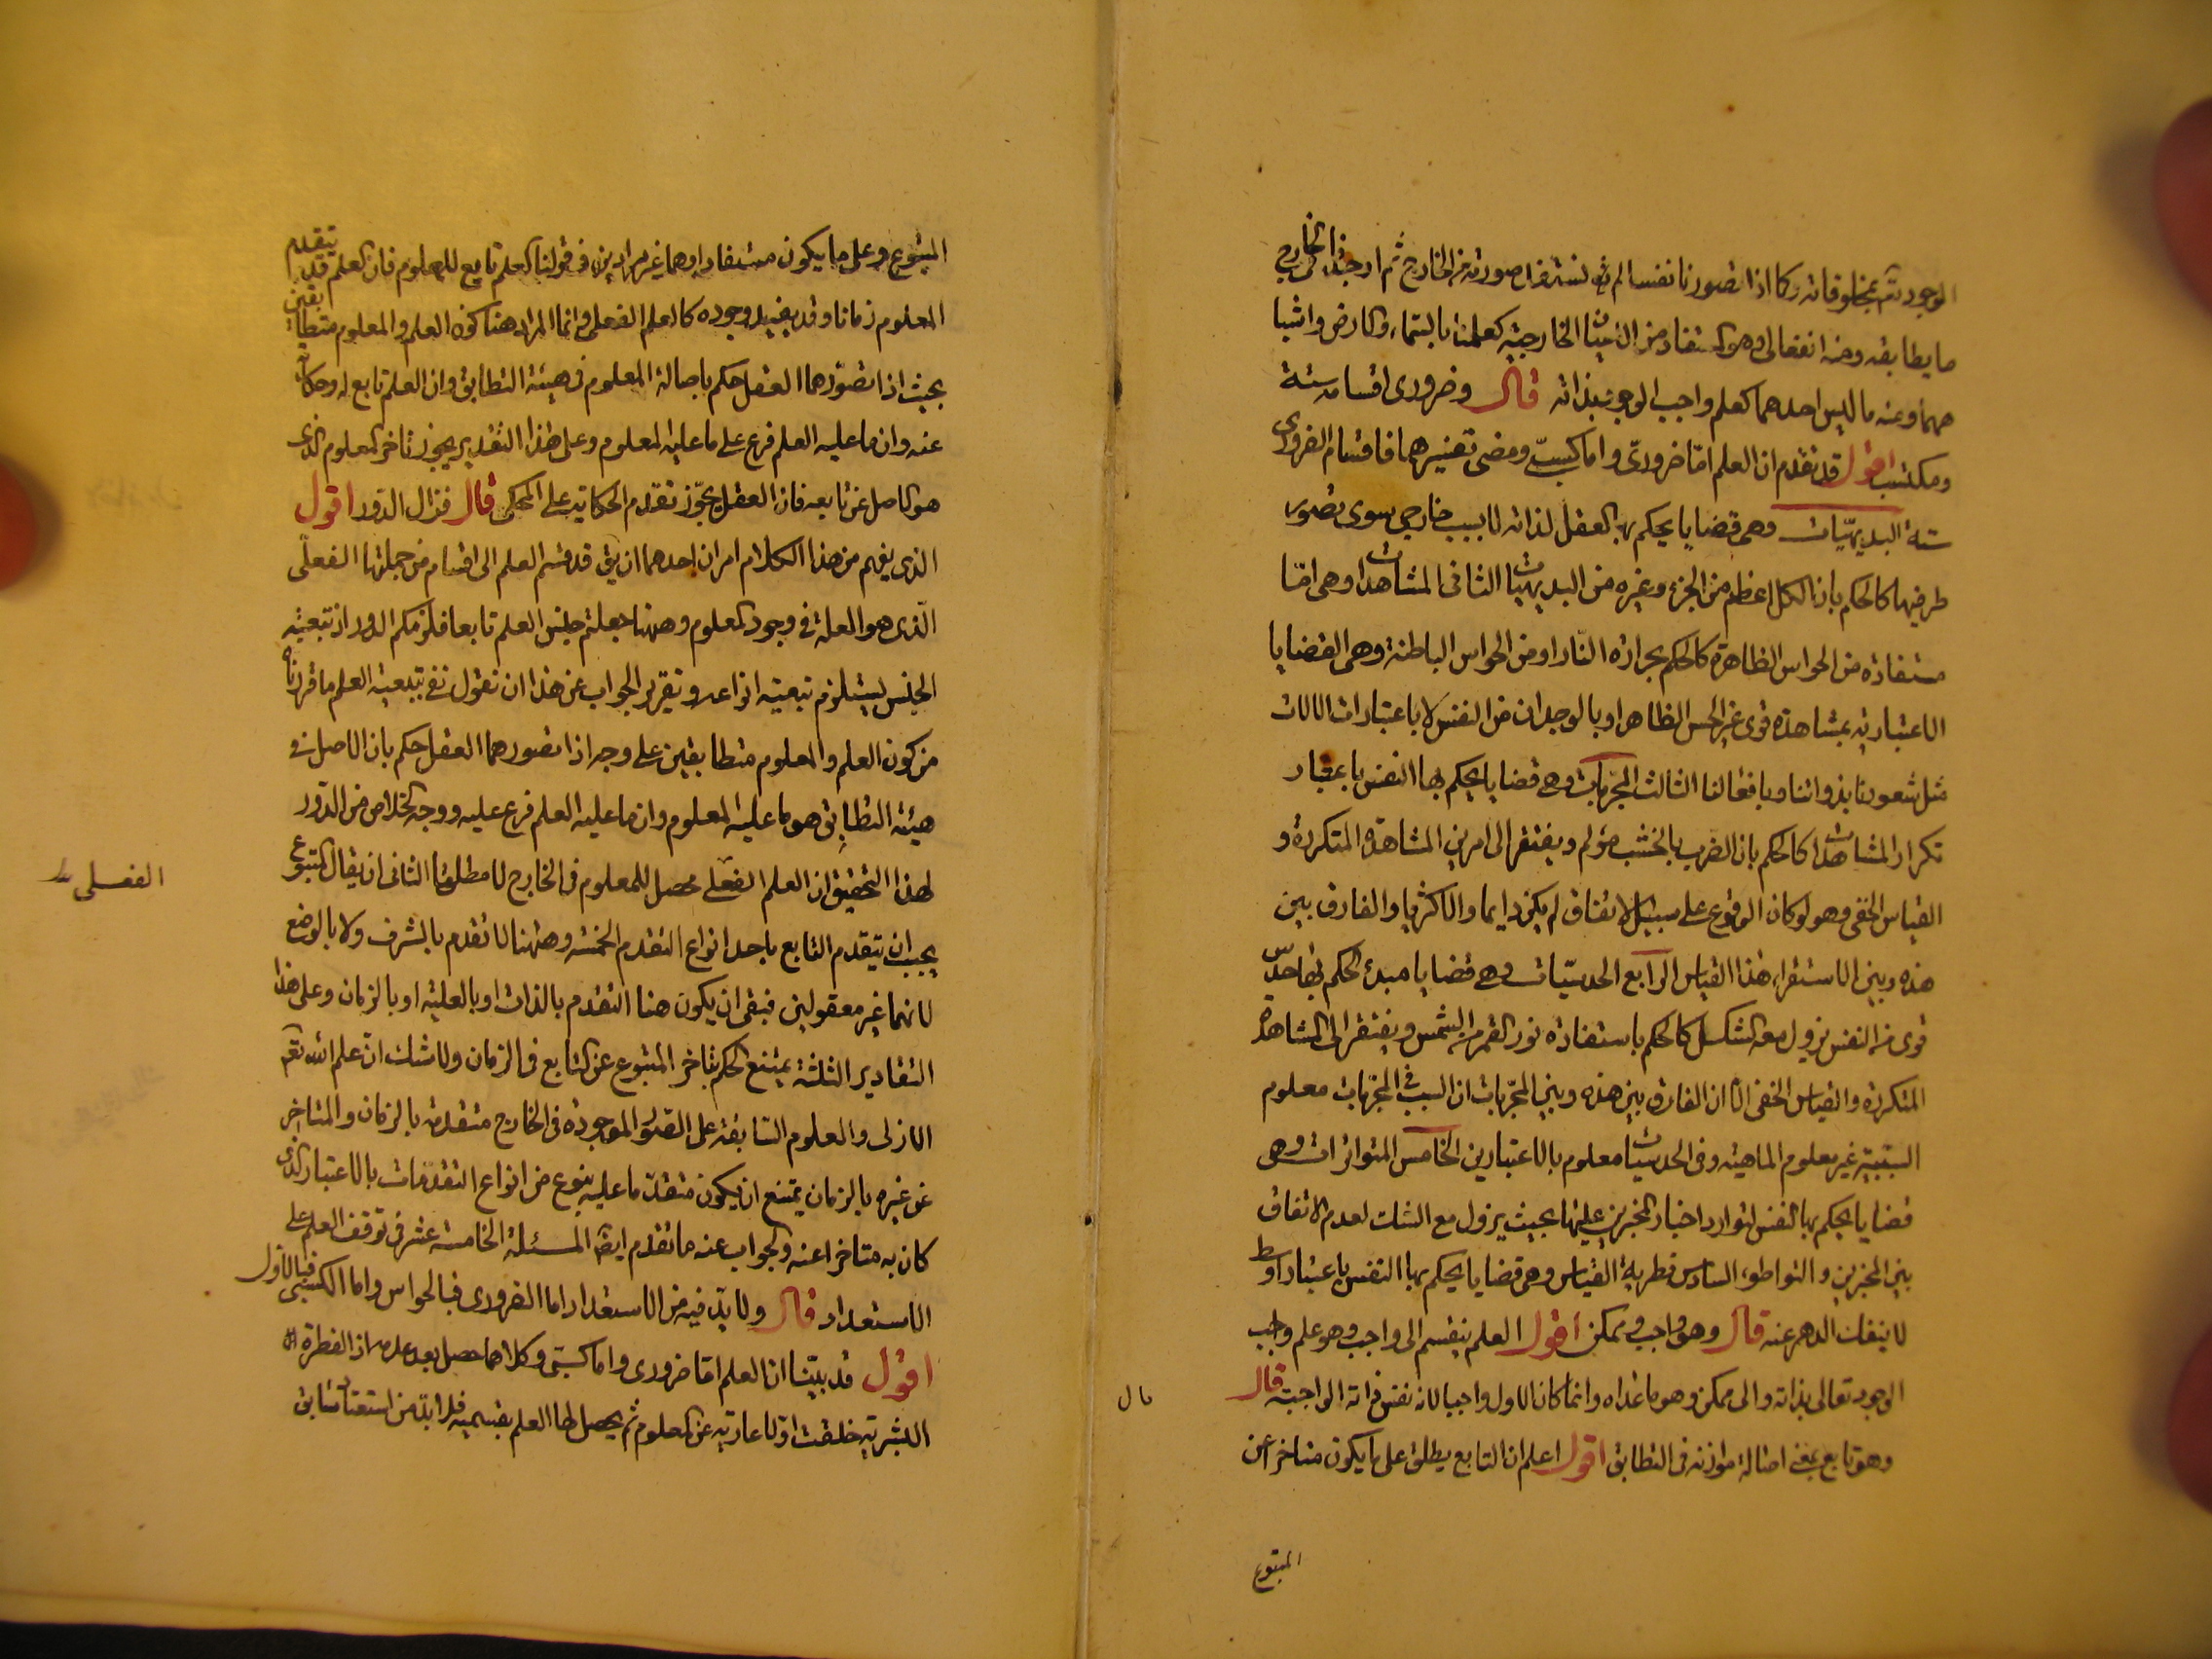 الوجود تم بمخلوقاته وكما اذا تصورنا نفسا لم نستفد صورته من الخارج ثم اوجدنا فى الخارج
ما يطابقه ومنه انفعالى وهو المستفاد من الاعيان الخارجية كعلمنا بالسماء والارض واشباههما
ومنه ما ليس احدهما كعلم واجب الوجود بذاته قال وضرورى اقسامه ستة
ومكتسب اقول قد تقدم ان العلم اما ضرورىّ واما كسبىّ ومضى تفسيرهما فاقسام الضرورى
ستة البديهيّات وهى قضايا يحكم بها العقل لذاته لا بسبب خارجى سوى تصور
طرفيها كالحكم بان الكل اعظم من الجزء وغيره من البديهيات الثانى المشاهدات وهى اما
مستفادة من الحواس الظاهرة كالحكم بحرارة النار او من الحواس الباطنة وهى القضايا
الاعتبارية بمشاهدة قوى غير الحس الظاهر او بالوجدان من النفس لا باعتبار الالات
مثل شعورنا بذواتنا وبافعالنا الثالث المجربات وهى قضايا يحكم بها النفس باعتبار
تكرار المشاهدات كالحكم بان الضرب بالخشب مؤلم ويفتقر الى امرين المشاهدة المتكررة و
القياس الخفى وهو لو كان الوقوع على سبيل الاتفاق لم يكن دايما والاكثريا والفارق بين
هذه وبين الاستقراء هذا القياس الرابع الحدسيّات وهى قضايا مبدء الحكم بها حدس
قوى من النفس يزول معه الشك كالحكم باستفادة نور القمر من الشمس ويفتقر الى المشاهدة
المتكررة والقياس الخفى الا ان الفارق بين هذه وبين المجربات ان السبب فى المجربات معلوم
السببية غير معلوم الماهية وفى الحدسيات معلوم بالاعتبارين الخامس المتواترات وهى
قضايا يحكم بها النفس لتوارد اخبار المخبرين عليها بحيث يزول مع الشك لعدم الاتفاق
بين المخبرين والتواطوء السادس فطرية القياس وهى قضايا يحكم بها النفس باعتبار اوسط
لا ينفك الدهر عنه قال وهو واجب وممكن اقول العلم ينقسم الى واجب وهو علم واجب
الوجود تعالى بذاته والى ممكن وهو ما عداه وانما كان الاول واجبا لانه نفس ذاته الواجبة قال
وهو تابع بمعنى اصالة موازنه فى التطابق اقول اعلم ان التابع يطلق على ما يكون متاخرا عن
المتبوع
المتبوع وعلى ما يكون مستفادا وهما غير مرادين فى قولنا العلم تابع للمعلوم فان العلم قد يتقدم
المعلوم زمانا وقد يفيد وجوده كالعلم الفعلى وانما المراد هنا كون العلم والمعلوم متطابقين
بحيث اذا تصورهما العقل حكم باصالة المعلوم فى هيئة التطابق وان العلم تابع له وحكاية
عنه وان ما عليه العلم فرع على ما عليه المعلوم وعلى هذا التقدير يجوز تاخر المعلوم الذى
هو الاصل عن تابعه فان العقل يجوّز تقدم الحكاية على المحكى قال فزال الدور اقول
الذى يفهم من هذا الكلام امران احدهما ان يق قد قسم العلم الى اقسام من جملتها الفعلى
الّذى هو العلة فى وجود المعلوم وههنا جعلتم جنس العلم تابعا فلزمكم الدور اذ تبعية
الجنس يستلزم تبعية انواعه وتقرير الجواب عن هذا ان نقول نعنى بتبعية العلم ما قررناه
من كون العلم والمعلوم متطابقين على وجه اذا تصورهما العقل حكم بان الاصل فى
هيئة التطابق هو ما عليه المعلوم وان ما عليه العلم فرع عليه ووجه الخلاص من الدور
بهذا التحقيق ان العلم الفعلى محصل للمعلوم فى الخارج لا مطلقا الثانى ان يقال المتبوع
يجب ان يتقدم التابع باحد انواع التقدم الخمسة وههنا لا تقدم بالشرف ولا بالوضع
لانهما غير معقولين فبقى ان يكون هنا التقدم بالذات او بالعلية او بالزمان وعلى هذا
التقادير الثلثة يمتنع الحكم بتاخر المتبوع عن التابع فى الزمان ولا شك انّ علم الله تعم
الازلى والعلوم السابقة على الصور الموجودة فى الخارج متقدمة بالزمان والمتاخر
عن غيره بالزمان يمتنع ان يكون متقدما عليه بنوع من انواع التقدمات بالاعتبار الذى
كان به متاخرا عنه والجواب عنه ما تقدم ايضا المسئلة الخامسة عشر فى توقف العلم على
الاستعداد قال ولا بدّ فيه من الاستعداد اما الضرورى فبالحواس واما الكسبى فبالاول
اقول قد بيّنا ان العلم اما ضرورى واما كسبى وكلاهما حصل بعد عدمه اذ الفطرة
البشرية خلقت اوّلا عارية عن المعلوم ثم يحصل لها العلم بقسميه فلا بدّ من استعداد سابق
الفعلى